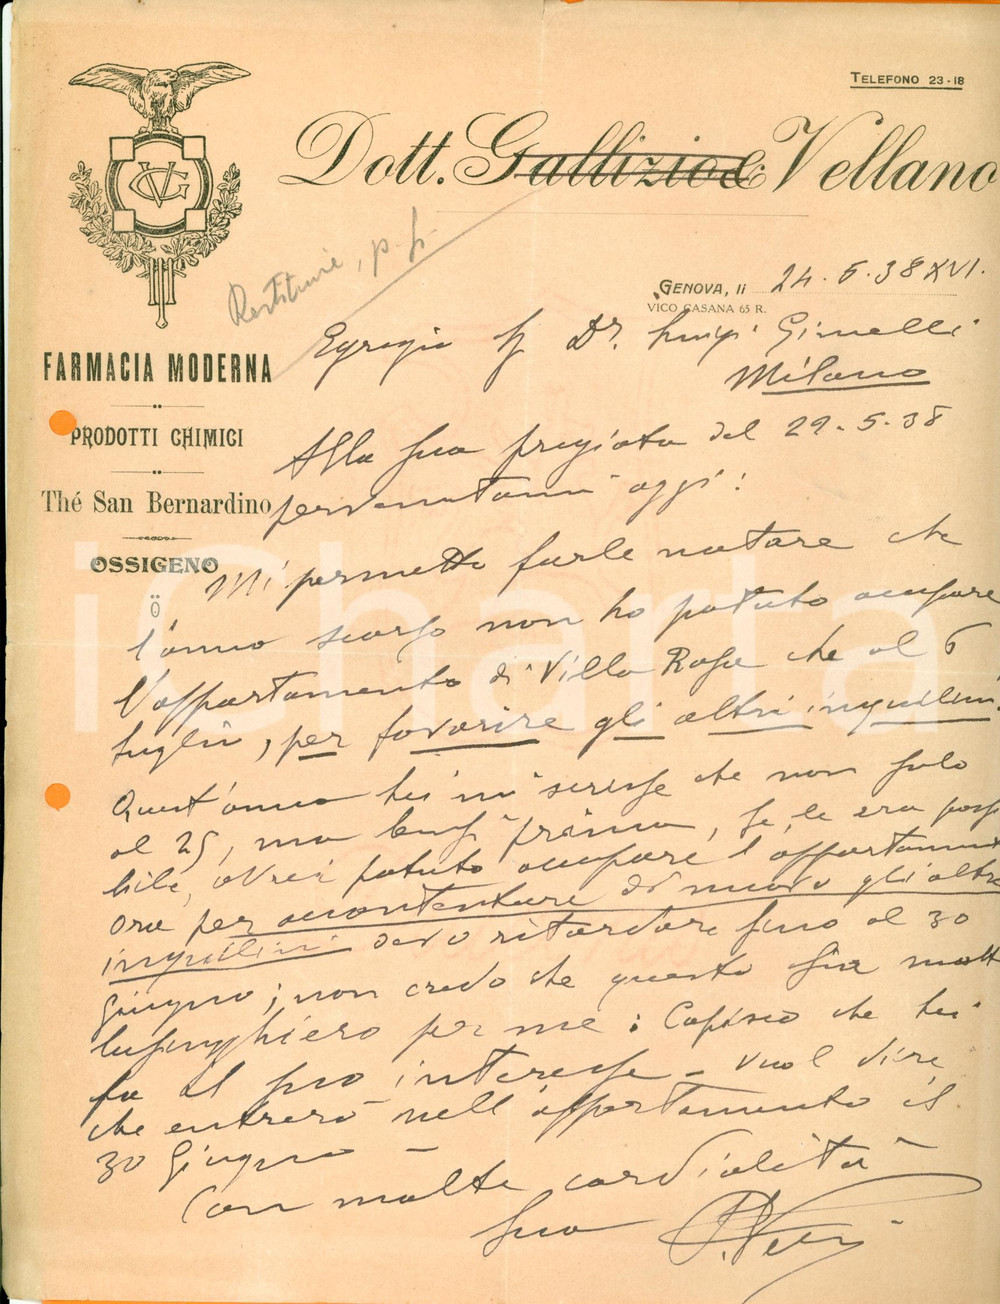 TELEFONO 23-18
Dott. Gallizio & Vellano
VGC
Restituire, p. f.
GENOVA, li 24.5.38 XVI.
VICO CASANA 65 R.
Egregio Dr. Luigi Ginelli
Milano
FARMACIA MODERNA
PRODOTTI CHIMICI
Thé San Bernardino
OSSIGENO
Alla sua pregiata del 22-5-38
pervenutami oggi:
Mi permetto farle notare che
l'anno scorso non ho potuto occupare
l'appartamento di Villa Rosa che al 6
luglio, per favorire gli altri inquilini.
Quest'anno lei mi scrisse che non solo
al 25, ma bensì prima, se le era possi
bile, avrei potuto occupare l'appartamento
ora per accontentare di nuovo gli altri
inquilini devo ritardare fino al 30
giugno; non credo che questo sia molto
lusinghiero per me: Capisco che lei
fa il suo interesse - vuol dire
che entrerò nell'appartamento il
30 Giugno -
Con molta cordialità
Suo
iCharta